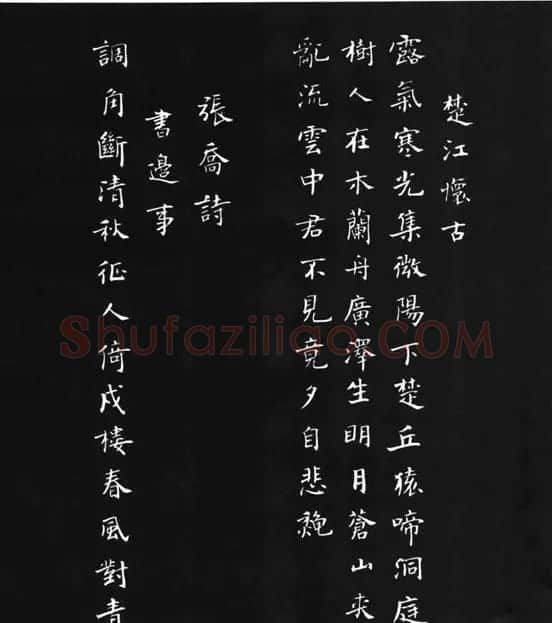 楚江懷古
露氣寒光集微陽下楚丘猿啼洞庭
樹人在木蘭舟廣澤生明月蒼山夾
亂流雲中君不見竟夕自悲
張喬詩
書邊事
調角斷清秋征人倚戍樓春風對青
Shufaziliao.COM